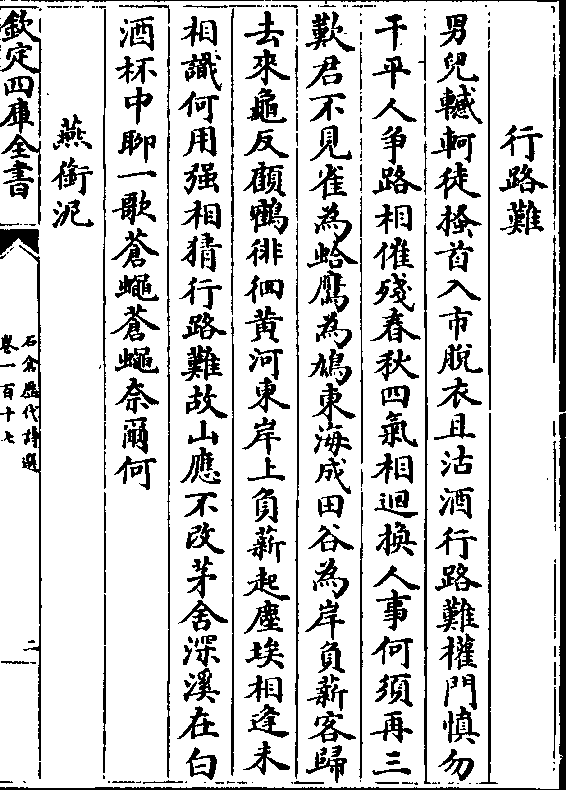 行路難
男兒轗軻徒搔首入市脫衣且沽酒行路難權門慎勿
干平人争路相催殘春秋四氣相迴換人事何須再三
歎君不見雀為蛤鷹為鳩東海成田谷為岸負薪客歸
去來龜反顧鶴徘徊黃河東岸上負薪起塵埃相逢未
相識何用强相猜行路難故山應不改茅舍深溪在白
酒杯中聊一歌蒼蠅蒼蠅奈爾何
燕銜泥
欽定四庫全書
石倉歷代詩選
卷一百十七
二